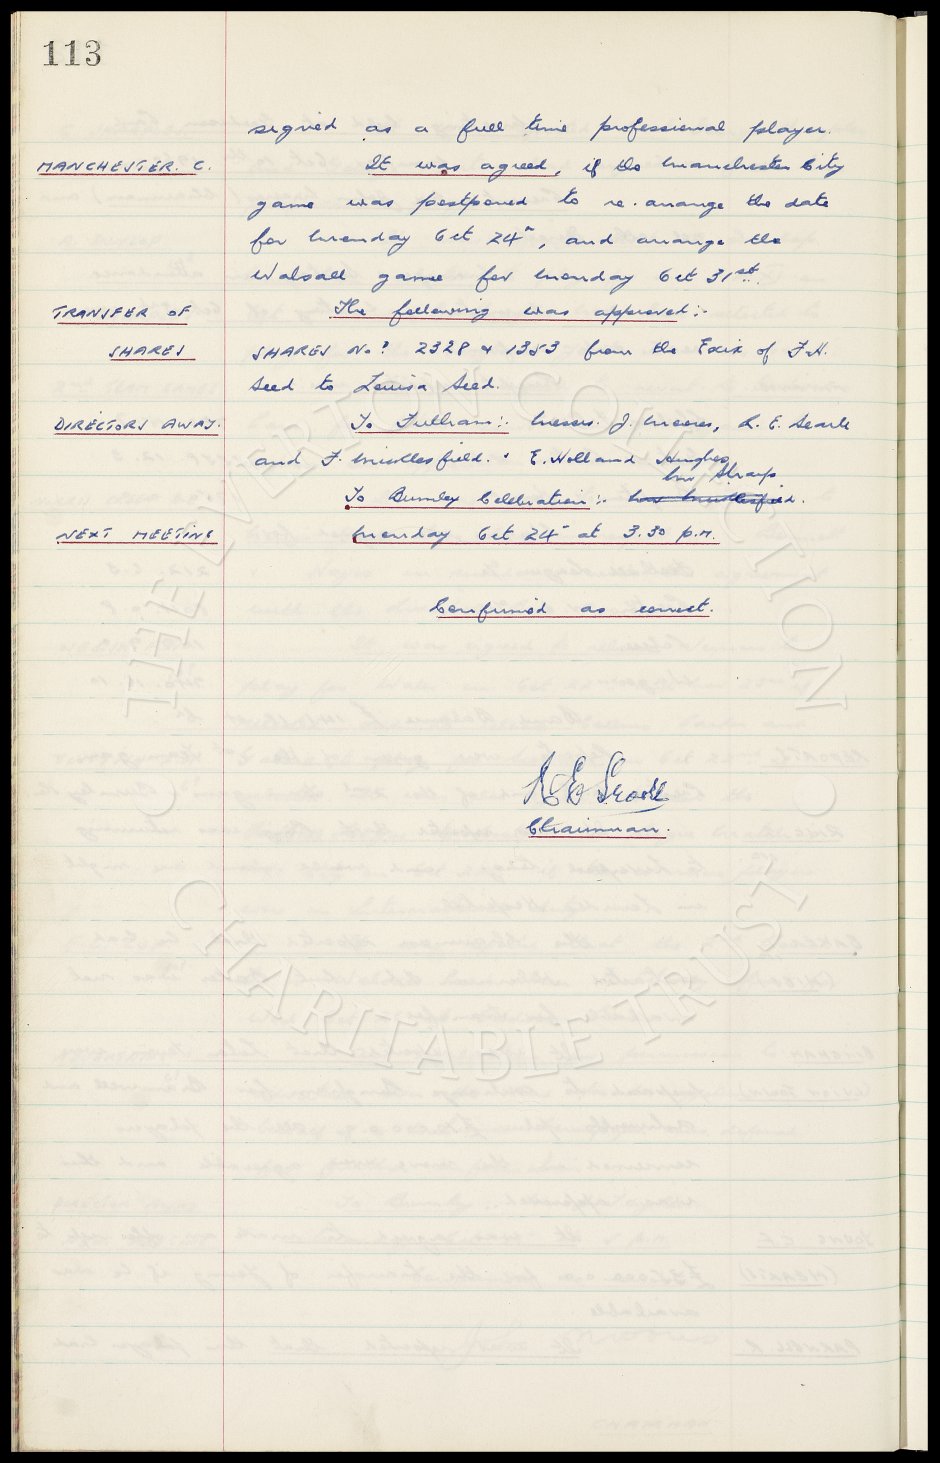 113
signed as a full time professional player.
MANCHESTER. C. It was agreed, if the Manchester City
game was postponed to re-arrange the date
for Monday Oct 24", and arrange the
Walsall game for Monday Oct 31st.
TRANSFER OF The following was approved:-
SHARES SHARES No? 2328 & 1353 from the Exix of F.H.
Seed to Louisa Seed.
DIRECTORS AWAY. To Fulham:- Messrs. J. Moores, R. E. Searle
and F. Micklesfield. E. Holland Hughes
Mr Sharp
To Burnley Celebration:-
NEXT MEETING Monday Oct 24" at 3.30 p.m.
Confirmed as correct.
R E Searle
Chairman.
THE EVERTON COLLECTION
CHARITABLE TRUST